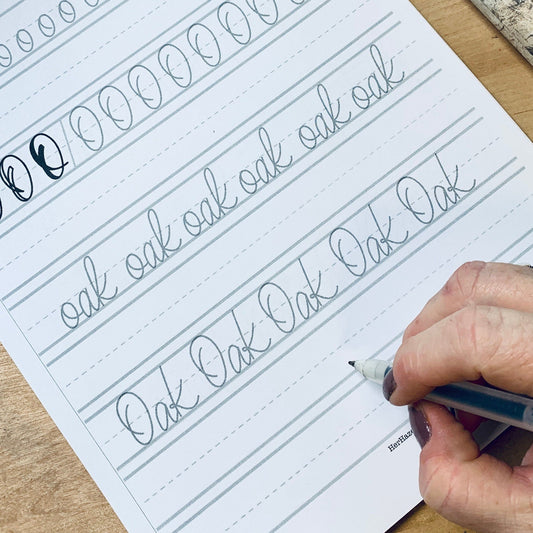 o o o o
O O O / O O O O O O O
oak oak oak oak oak oak
Oak Oak Oak Oak Oak